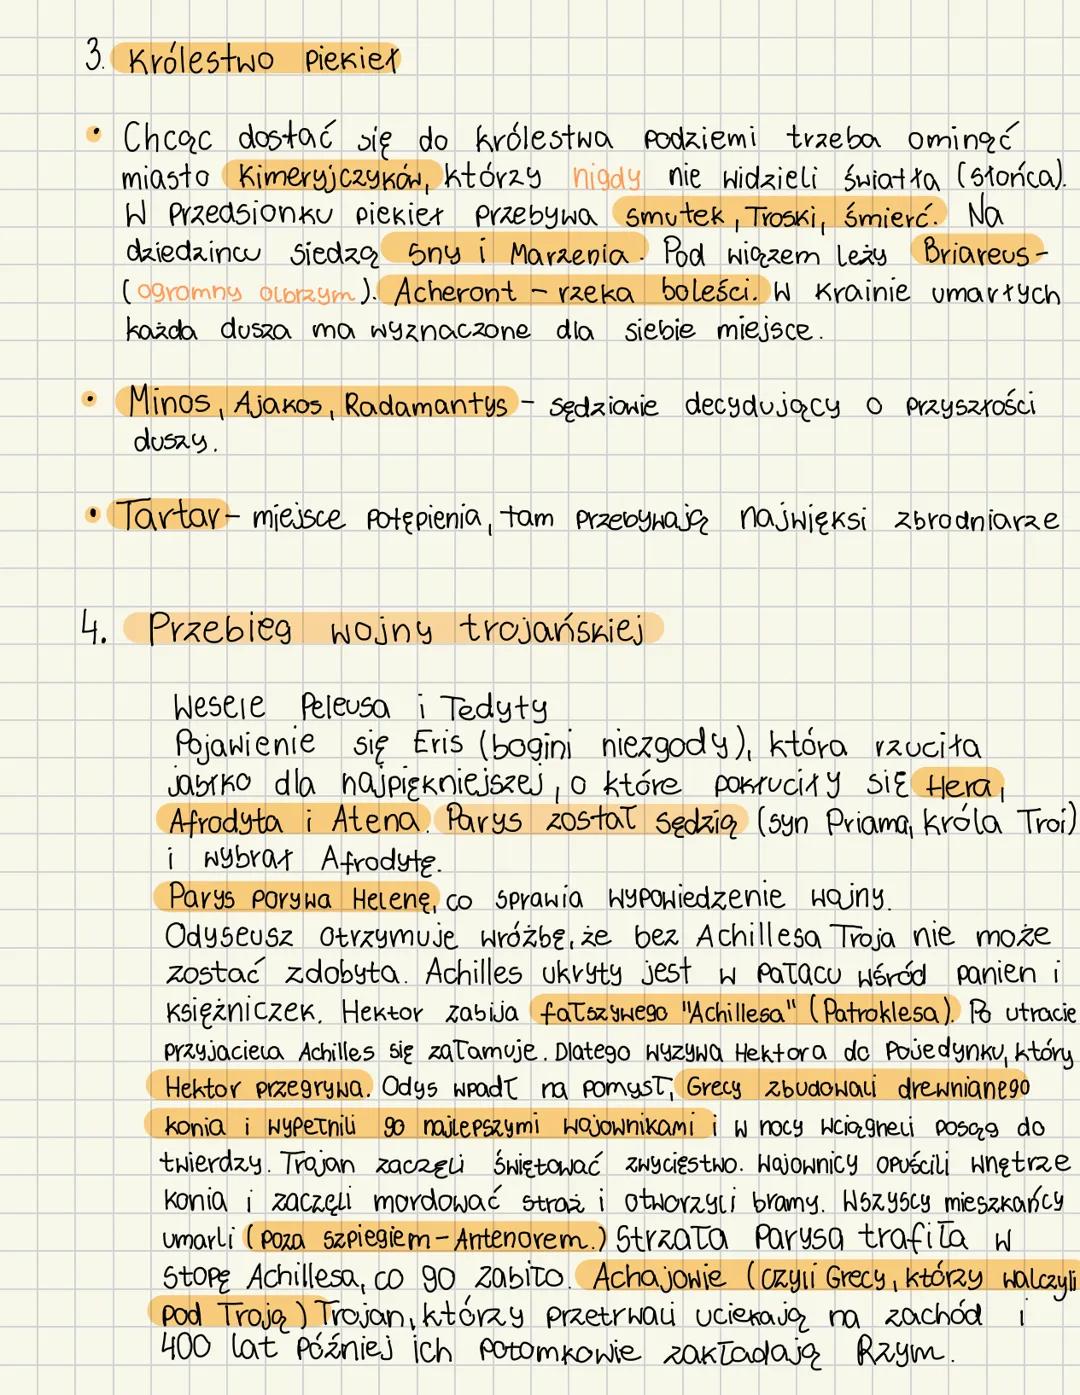 3. Królestwo piekieł
• Chcąc dostać się do królestwa podziemi trzeba ominąć
miasto Kimeryjczyków, którzy nigdy nie widzieli światła (słońca).
W przedsionku piekieł przebywa smutek, Troski, śmierć. Na
dziedzińcu siedzą Sny i Marzenia. Pod wiązem leży Briareus-
(ogromny olbrzym). Acheront - rzeka boleści. W Krainie umarłych
każda dusza ma wyznaczone dla siebie miejsce.
• Minos, Ajakos, Radamantys - sędziowie decydujący o przyszłości
duszy.
• Tartar - miejsce potępienia, tam przebywają najwięksi zbrodniarze
4. Przebieg wojny trojańskiej
Wesele Peleusa i Tedyty
Pojawienie się Eris (bogini niezgody), która rzuciła
jabłko dla najpiękniejszej, o które pokłuciły się Hera,
Afrodyta i Atena. Parys został sędzią (syn Priama, króla Troi)
i wybrał Afrodytę.
Parys porywa Helenę, co sprawia wypowiedzenie wojny.
Odyseusz otrzymuje wróżbę, że bez Achillesa Troja nie może
zostać zdobyta. Achilles ukryty jest w pałacu wśród panien i
księżniczek. Hektor zabija fałszywego "Achillesa" (Patroklesa). Po utracie
przyjaciela Achilles się załamuje. Dlatego wyzywa Hektora do pojedynku, który
Hektor przegrywa. Odys wpadł na pomysł, Grecy zbudowali drewnianego
konia i wypełnili go najlepszymi wojownikami i w nocy wciągneli posąg do
twierdzy. Trojan zaczęli świętować zwycięstwo. Wojownicy opuścili wnętrze
konia i zaczęli mordować straż i otworzyli bramy. Wszyscy mieszkańcy
umarli (poza szpiegiem - Antenorem.) Strzała Parysa trafiła w
stopę Achillesa, co go zabiło. Achajowie (czyli Grecy, którzy walczyli
pod Troją) Trojan, którzy przetrwali uciekają na zachód i
400 lat później ich potomkowie zakładają Rzym.